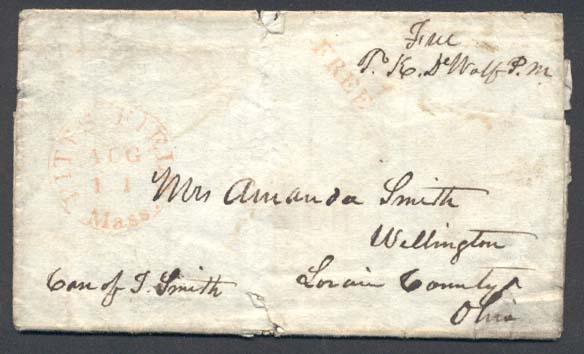 Free
T. K. DeWolf P.M
FREE
PITTSFIELD
AUG
11
Mass.
Mrs Amanda Smith
Wellington
Care of J. Smith
Lorain County
Ohio